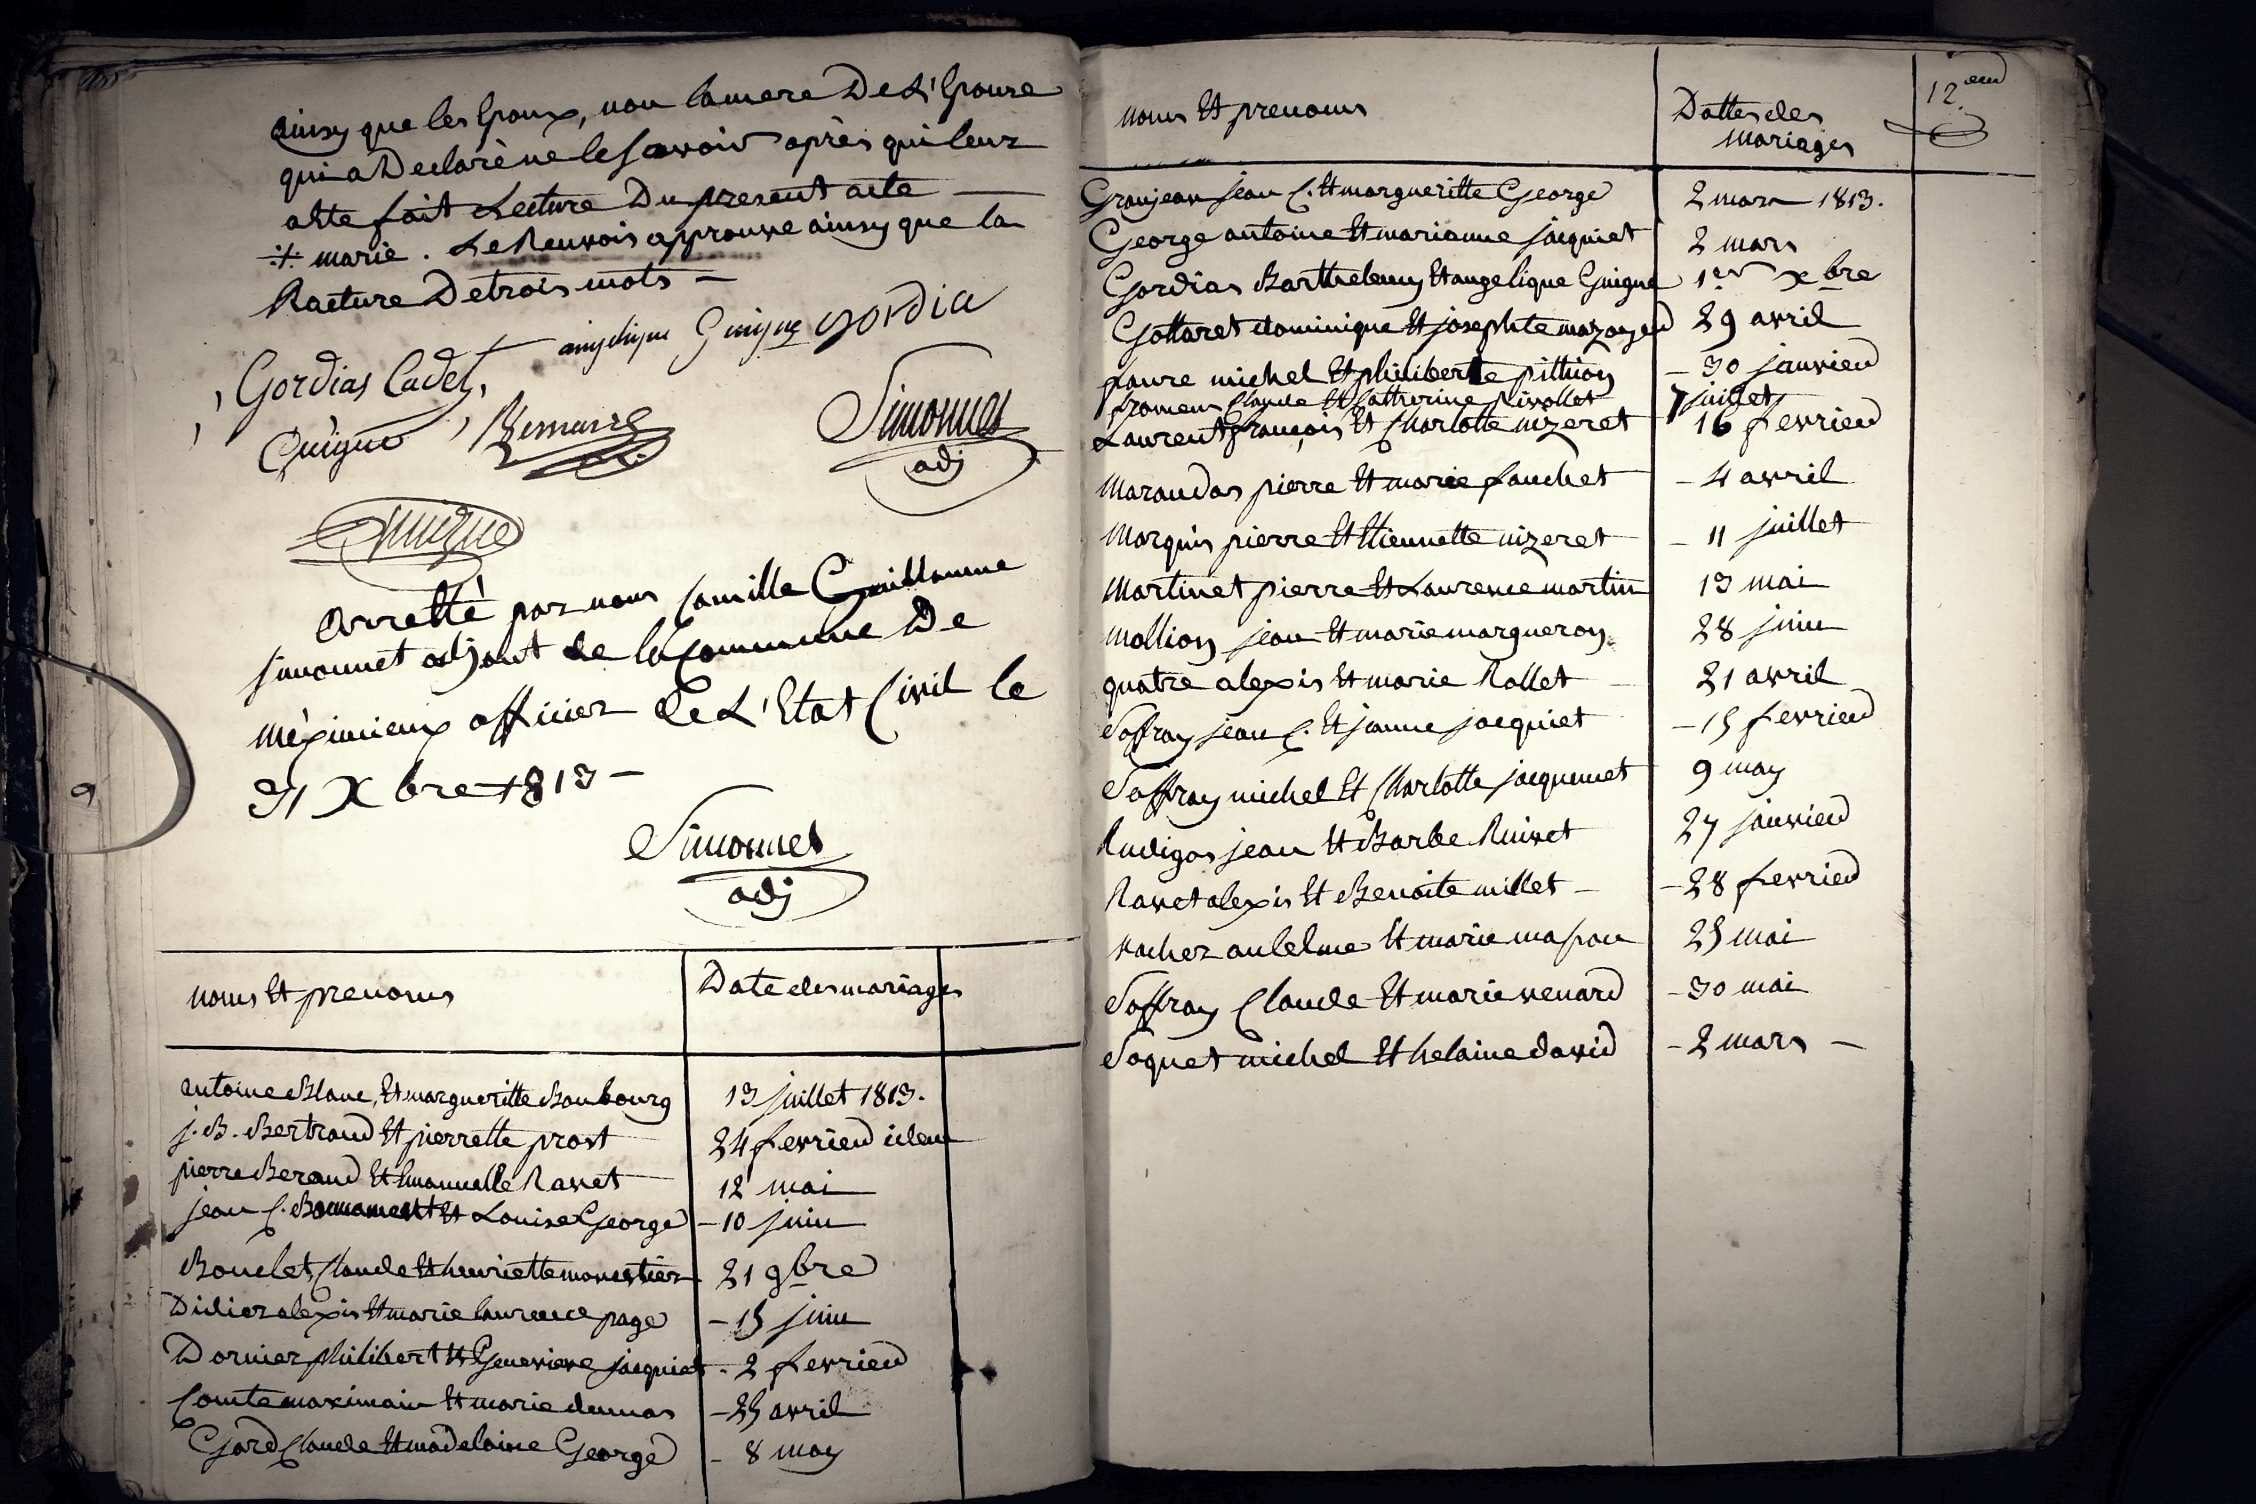 ainsy que les Epoux, non la mere De L'Epouse
qui a Declaré ne le savoir après qui leur
atte fait Lecture Du present acte
·/· marie . Le Renvois approuve ainsy que la
Racture De trois mots —
Gordias Cadet, angelique Guigue gordia
Guigue Simonnet
adj
Guigue
Arretté par nous Camille Guillaume
Simonnet adjoint de la Commune De
Méximieux officier De L'Etat Civil le
31 Xbre 1813 —
Simonnet
adj
noms Et prenoms Date des mariages
antoine Blanc, Et margueritte Baubourg 13 juillet 1813.
j. B. Bertrand Et pierrette prost 24 fevrier idem
pierre Beraud Et Emanuelle Ravet 12 mai
jean C. Et Louise George — 10 juin
Bouclet Claude Et henriette monestier 21 9bre
Didier alexis Et marie laurence page — 15 juin
Dornier philibert Et Genevieve jacquiet - 2 fevrier
Comte maximain Et marie dumas — 25 avril
Gard Claude Et madelaine George — 8 may
noms Et prenoms Dattes des mariages 12.
Granjean jean C. Et margueritte George 2 mars 1813.
George antoine Et marianne jacquiet 2 mars
Gordias Barthelemy Et angelique Guigue 1er xbre
Gottaret dominique Et josephte mazoyer 29 avril
faure michel Et philiberte pithion — 30 janvier
fromen Claude Et Catherine Rivollet 7 juillet
Laurent françois Et Charlotte nizeret 16 fevrier
Marandas pierre Et marie fauchet — 4 avril
Marquis pierre Et Etiennette nizeret — 11 juillet
Martinet pierre Et Laurence martin 13 mai
Mollion jean Et marie margueron 28 juin
quatre alexis Et marie Rollet 21 avril
Soffray jean C. Et janne jacquiet — 15 fevrier
Soffray michel Et Charlotte jacquemet 9 may
Rudigos jean Et Barbe Ruivet 27 janvier
Ravet alexis Et Benoite millet — — 28 fevrier
vacher anthelme Et marie 25 mai
Soffray Claude Et marie venard — 30 mai
Soquet michel Et helaine david — 2 mars —